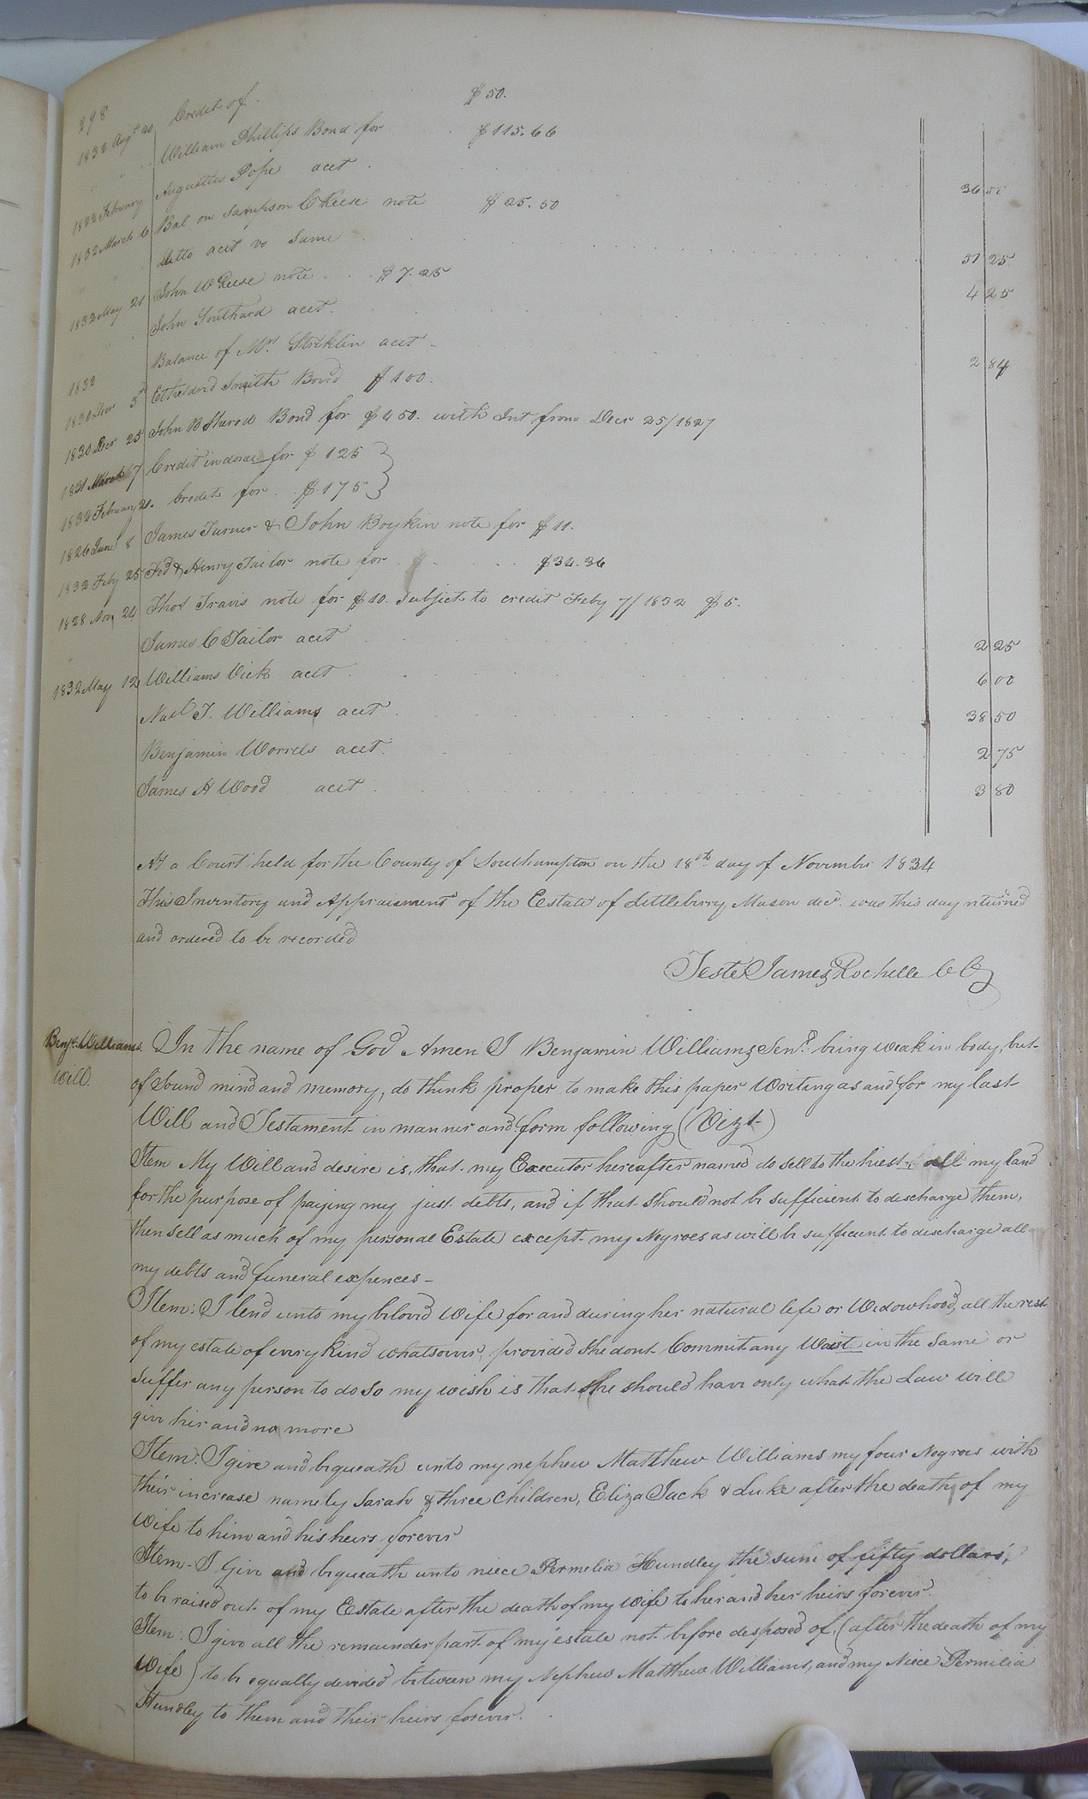 298
Credit of $50.
1832 Augt 20 William Phillips Bond for $115.66
Augustus Pope acct
1832 February Bal on Sampson C Reese note $25.50 36
1832 March 6 ditto acct vs Same
John W Reese note $7.25 51 25
1832 May 21 John Southard acct. 4 25
Balance of Mrs Stricklin acct
1832 Etheldred Smith Bond $100. 2 84
1830 3d John B Bond for $450. with Int from Decr 25/1827
1830 Decr 25 Credit indorse for $125
1831 March 7 Credit for $175
1832 February 21.
1826 June 8 James Turner & John Boykin note for $11.
1832 Feby 25 & Henry Tailor note for $34.36
1828 Nov 24 Thos Travis note for $10. Subject to credit Feby 7/1832 $5.
James C Tailor acct 2 25
1832 May 12 Williams Vick acct 6 00
Natl T. Williams acct 38 50
Benjamin Worrels acct. 2 75
James H Wood acct 3 80
At a Court held for the County of Southampton on the 18th day of November 1834
This Inventory and Appraisement of the Estate of Littleberry Mason decd. was this day returned
and ordered to be recorded
Teste James Rochelle C C
Benja. Williams In the name of God Amen I Benjamin Williams Senr. being weak in body, but
Will. of Sound mind and memory, do think proper to make this paper Writing as and for my last
Will and Testament in manner and form following (Vizt)
Item My Will and desire is, that my Executor hereafter named do sell to the hiest all my land
for the purpose of paying my just debts, and if that should not be sufficient to discharge them,
then sell as much of my personal Estate except my Negroes as will be sufficient to discharge all
my debts and funeral expences
Item: I lend unto my beloved Wife for and during her natural life or Widowhood, all the rest
of my estate of every kind whatsover, provided she dont Commit any Waste in the Same or
Suffer any person to do So my wish is that She should have only what the Law will
give her and no more
Item: I give and bequeath unto my nephew Matthew Williams my four Negroes with
their increase namely Sarah & three Children, Eliza Jack & Luke after the death of my
Wife to him and his heirs forever
Item- I Give and bequeath unto niece Permelia Hundley the sum of fifty dollars,
to be raised out of my Estate after the death of my Wife to her and her heirs forever.
Item: I give all the remainder part of my estate not before desposed of. (after the death of my
Wife) to be equally devided between my Nephew Matthew Williams, and my Niece Permilia
Hundley to them and their heirs forever.